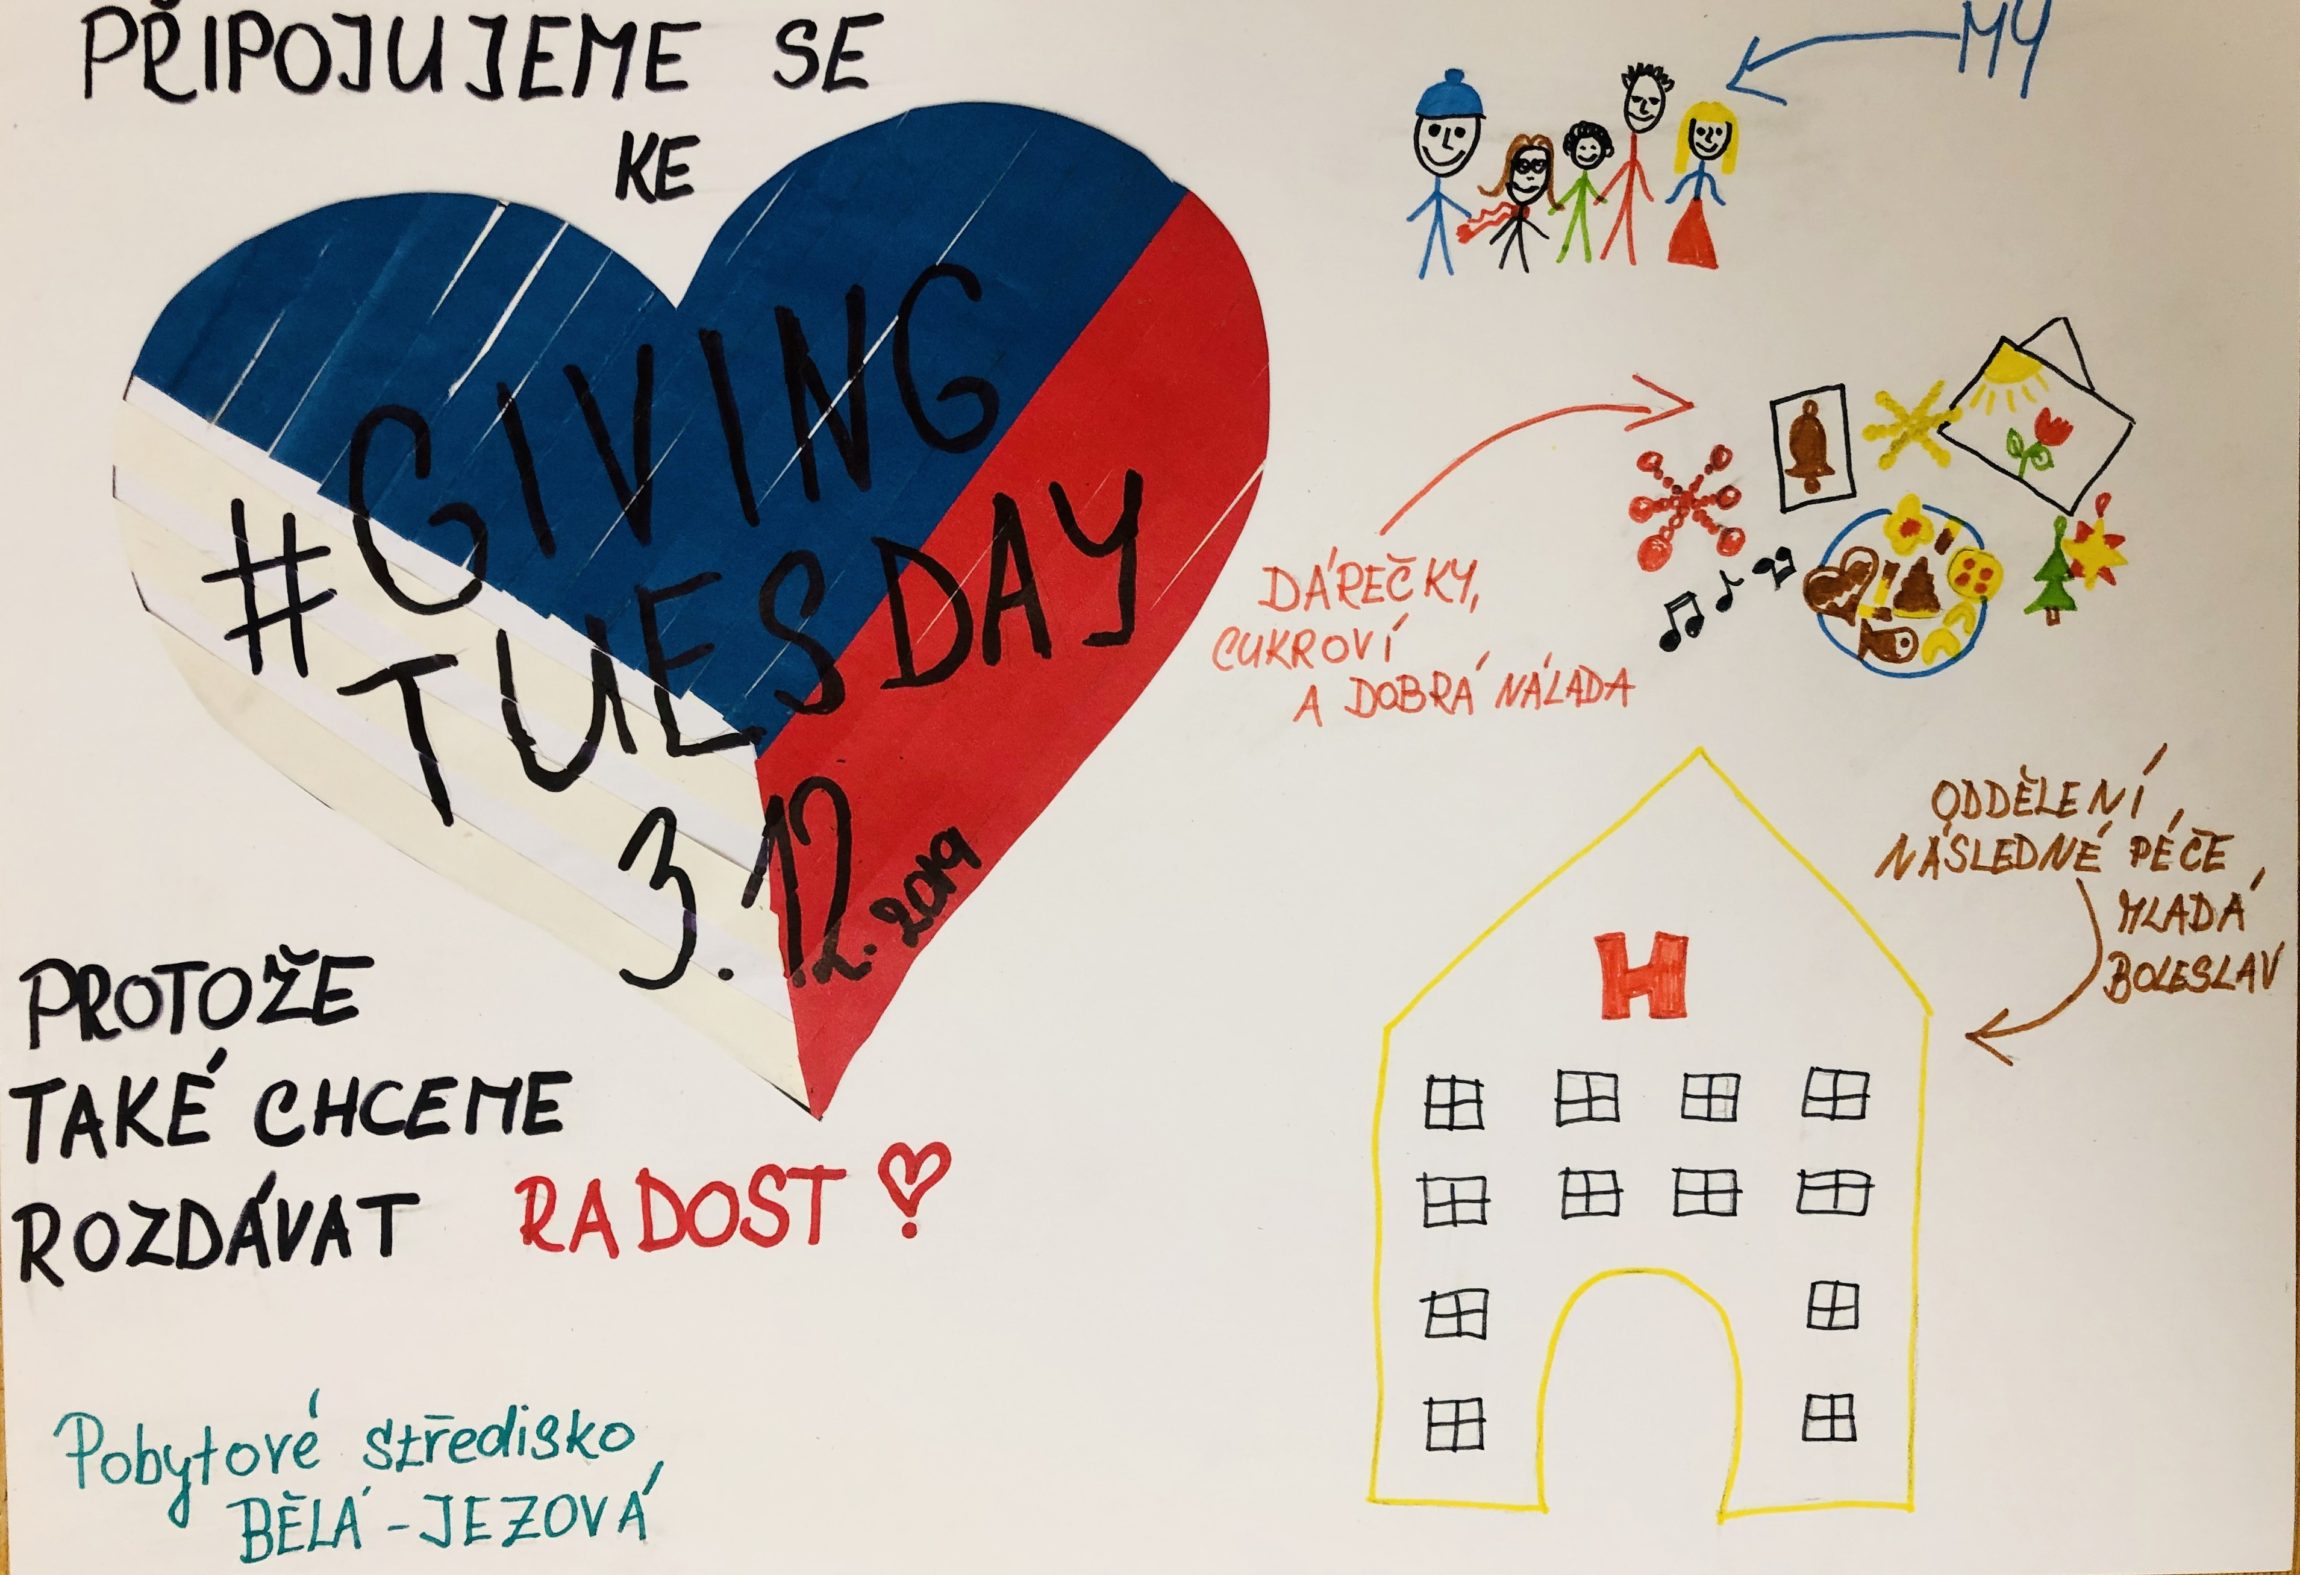 PŘIPOJUJEME SE
KE
#GIVING
TUESDAY
3.12.2019
PROTOŽE
TAKÉ CHCEME
ROZDÁVAT RADOST!
Pobytové středisko
BĚLÁ-JEZOVÁ
MY
DÁREČKY,
CUKROVÍ
A DOBRÁ NÁLADA
ODDĚLENÍ
NÁSLEDNÉ PÉČE,
MLADÁ
BOLESLAV
H